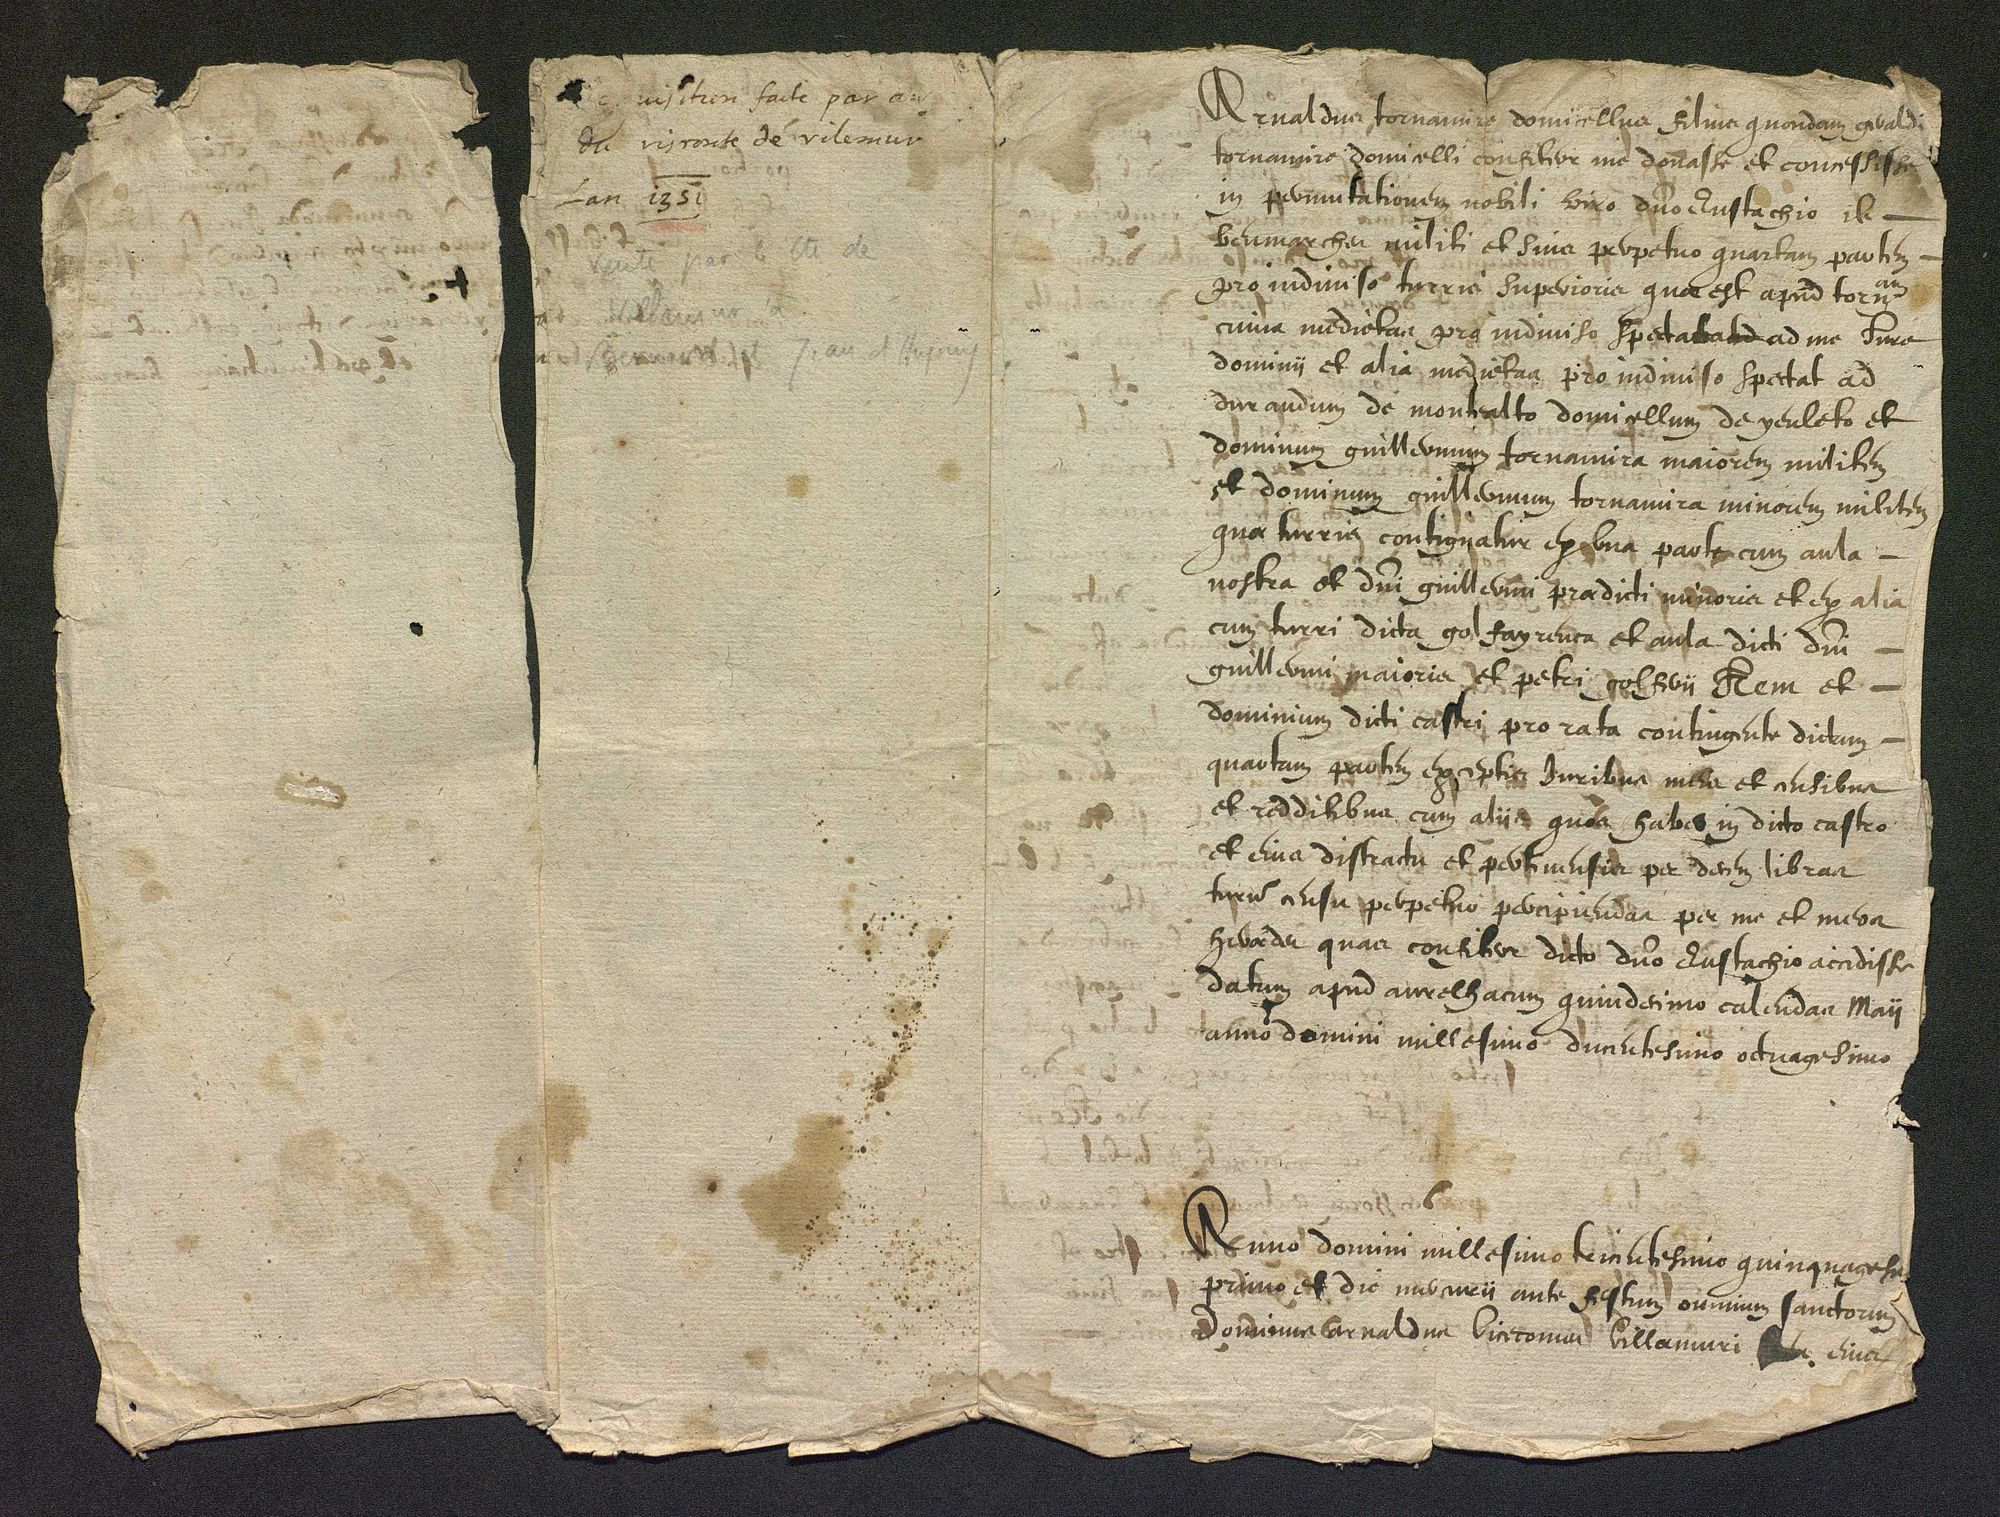 uisition faite par an
du visconte de vilemur
Lan 1351
Vente par le Cte de
Villemur à
Bernard et Jean d'
Arnaldus tornamire domicellus filius quondam geraldi
tornamire domicelli confiteor me donasse et concessisse
in permutationem nobili viro dno Eustachio de
beumarches militi et suis perpetuo quartam partem
pro indiviso turris superioris quae est apud tornam
cuius medietas pro indiviso spectat ad me Jure
dominii et alia medietas pro indiviso spectat ad
durandum de montealto domicellum de yenleto et
dominum guillermum tornamira maiorem militem
et dominum guillermum tornamira minorem militem
quae turris contignatur ex una parte cum aula
nostra et dni guillermi praedicti minoris et ex alia
cum turri dicta golfayrenca et aula dicti dni
guillermi maioris et petri golferii Item et
dominium dicti castri pro rata contingente dictam
quartam partem exceptis Juribus meis et censibus
et redditibus cum aliis quos habeo in dicto castro
et eius districtu et pertinensiis per decem libras
turn censu perpetuo percipiendas per me et meos
heredes quas confiteor dicto dno Eustachio accidisse
datum apud aurelhacum quindecimo calendas Maii
anno domini millesimo ducentesimo octuagesimo
Anno domini millesimo tricentesimo quinquagesi
primo et die mercurii ante festum omnium sanctorum
Dominus arnaldus vicecomes villamuri eius